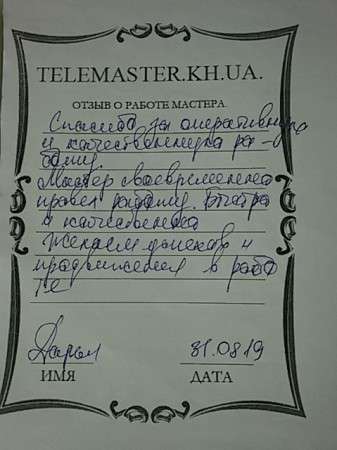 TELEMASTER.KH.UA.
ОТЗЫВ О РАБОТЕ МАСТЕРА
Спасибо за оперативную
и качественную ра-
боту.
Мастер своевременно
провел работу. Быстро
и качественно
Желаем успехов и
продвижения в рабо
те
31.08.19
ИМЯ ДАТА